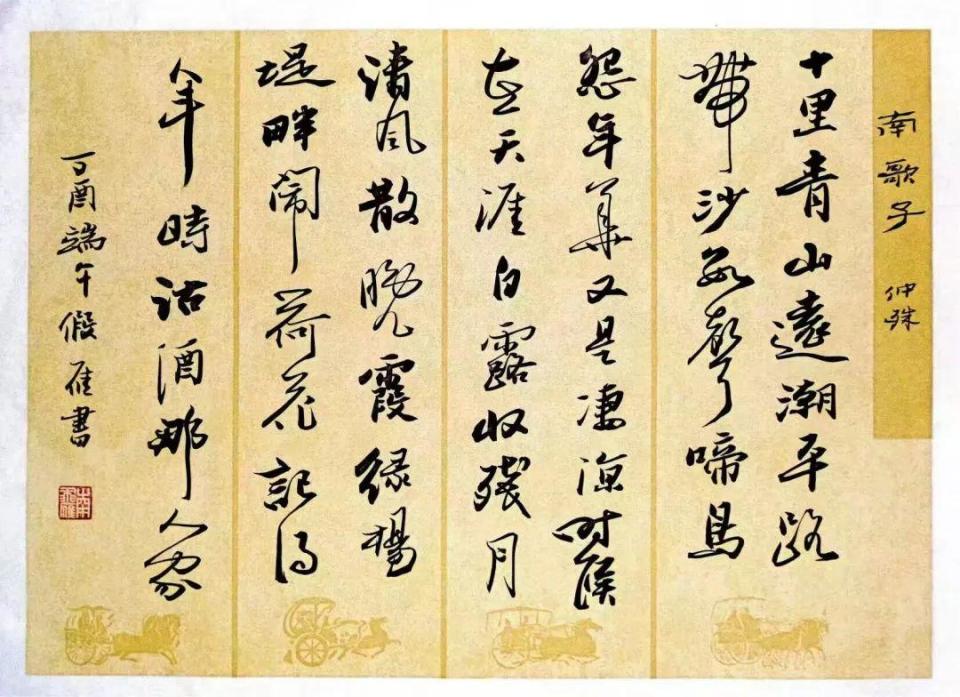 南歌子 仲殊
十里青山遠潮平路
帶沙數聲啼鳥
怨年華又是凄涼時候
在天涯白露收殘月
清風散曉霞綠楊
堤畔鬧荷花記得
年時沽酒那人家
丁酉端午假雁書